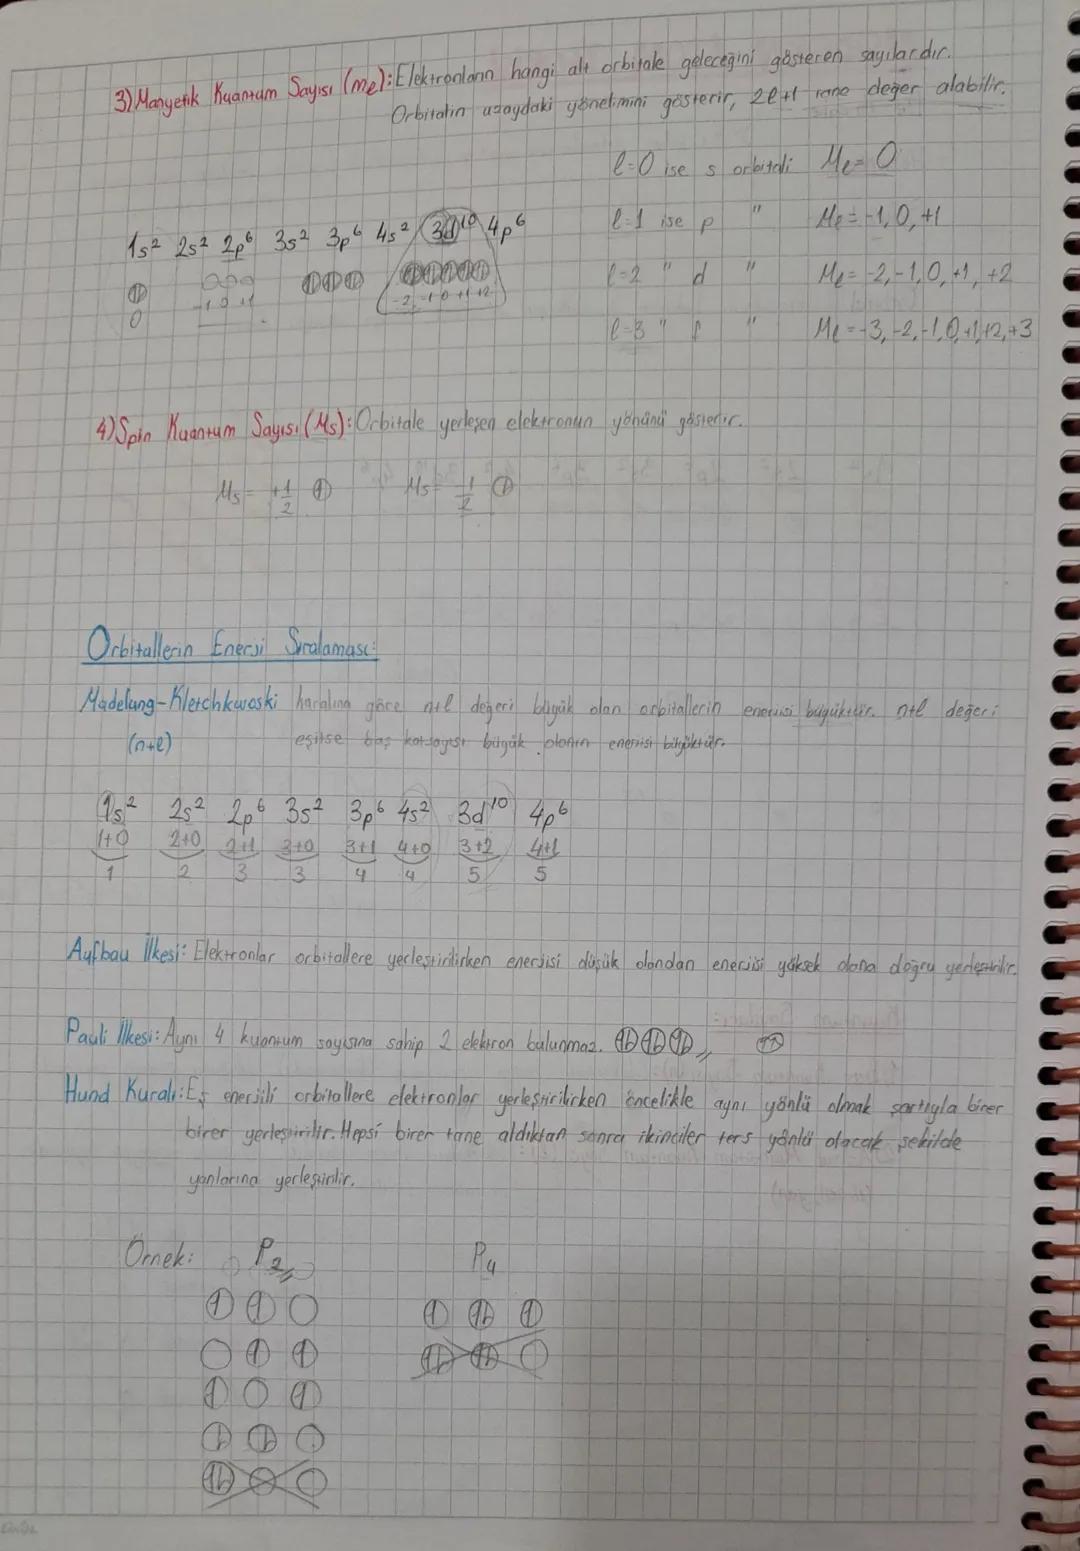 3) Manyetik Kuantum Sayısı (ml): Elektronların hangi alt orbitale geleceğini gösteren sayılardır.
Orbitalin uzaydaki yönelimini gösterir, 2l+1 tane değer alabilir.
l=0 ise s orbitali Ml= 0
l=1 ise p " Ml= -1, 0, +1
1s² 2s² 2p⁶ 3s² 3p⁶ 4s² 3d¹⁰ 4p⁶
l=2 " d " Ml= -2, -1, 0, +1, +2
0 -1 0 +1 -2 -1 0 +1 +2
l=3 " f " Ml = -3, -2, -1, 0, +1, +2, +3
4) Spin Kuantum Sayısı (Ms): Orbitale yerleşen elektronun yönünü gösterir.
Ms= +1/2 Ms= -1/2
Orbitallerin Enerji Sıralaması:
Madelung-Kletchkwoski kuralına göre n+l değeri büyük olan orbitallerin enerjisi büyüktür. n+l değeri
(n+l) eşitse baş katsayısı büyük olanın enerjisi büyüktür.
1s² 2s² 2p⁶ 3s² 3p⁶ 4s² 3d¹⁰ 4p⁶
1+0 2+0 2+1 3+0 3+1 4+0 3+2 4+1
1 2 3 3 4 4 5 5
Aufbau İlkesi: Elektronlar orbitallere yerleştirilirken enerjisi düşük olandan enerjisi yüksek olana doğru yerleştirilir.
Pauli İlkesi: Aynı 4 kuantum sayısına sahip 2 elektron bulunmaz.
Hund Kuralı: Eş enerjili orbitallere elektronlar yerleştirilirken öncelikle aynı yönlü olmak şartıyla birer
birer yerleştirilir. Hepsi birer tane aldıktan sonra ikinciler ters yönlü olacak şekilde
yanlarına yerleştirilir.
Örnek: P₂ P₄